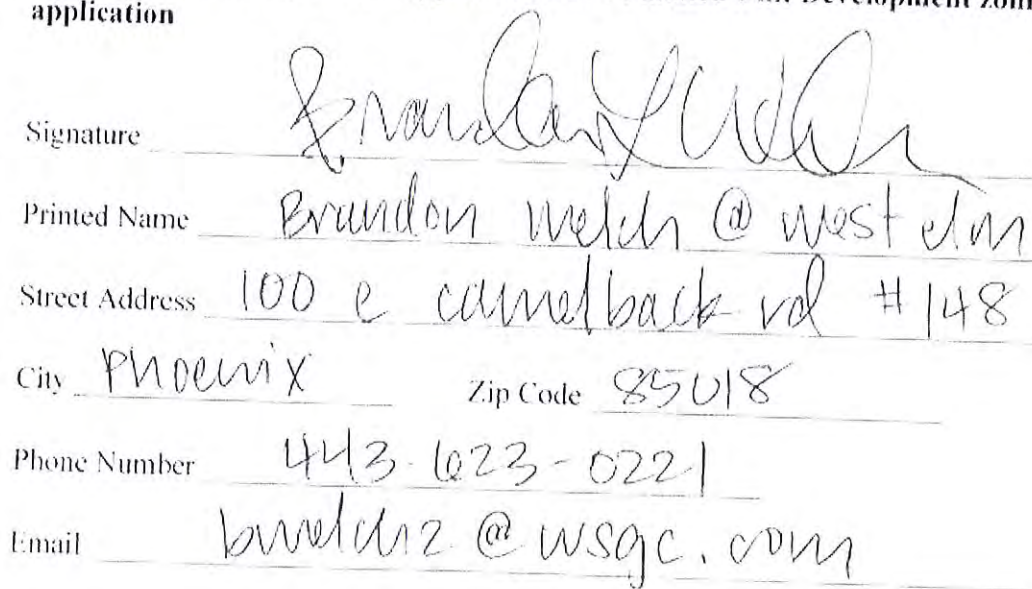 Development
application
Signature Brandon Welch
Printed Name Brandon Welch @ west elm
Street Address 100 e camelback rd #148
City Phoenix Zip Code 85018
Phone Number 443-623-0221
Email bwelch2@wsgc.com